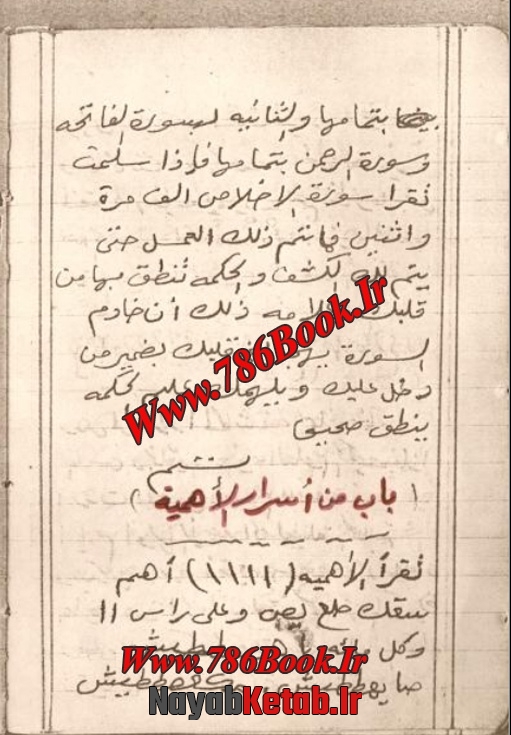 بتمامها والثانيه لسورة الفاتحه
وسورة الرحمن بتمامها فإذا سلمت
تقرأ سورة الإخلاص الف مرة
واثنين فانتم ذلك العمل حتى
يتم لك الكشف والحكمه تنطق بها من
قلبك ذلك أن خادم
السورة قلبك بضمير من
دخل عليك ويلهمك الحكمه
ينطق صحيحا
ستتم
( باب من أسرار الأهمية )
تقرأ الأهميه (١١١١) أهم
سقك حلع يص وعلى راس ١١
وكل مائه
Www.786Book.Ir
Www.786Book.Ir
NayabKetab.Ir